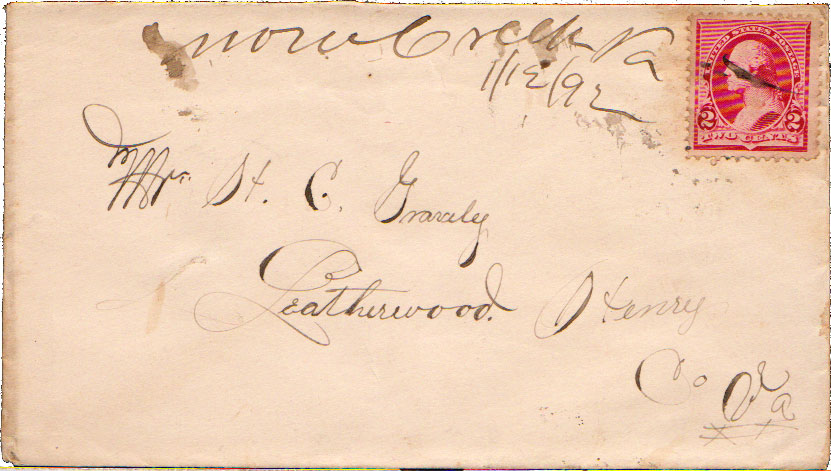 Snow Creek Va
1/12/92
UNITED STATES POSTAGE
2 2
TWO CENTS
Mr. H. C. Gravely
Leatherwood. Henry
Co Va